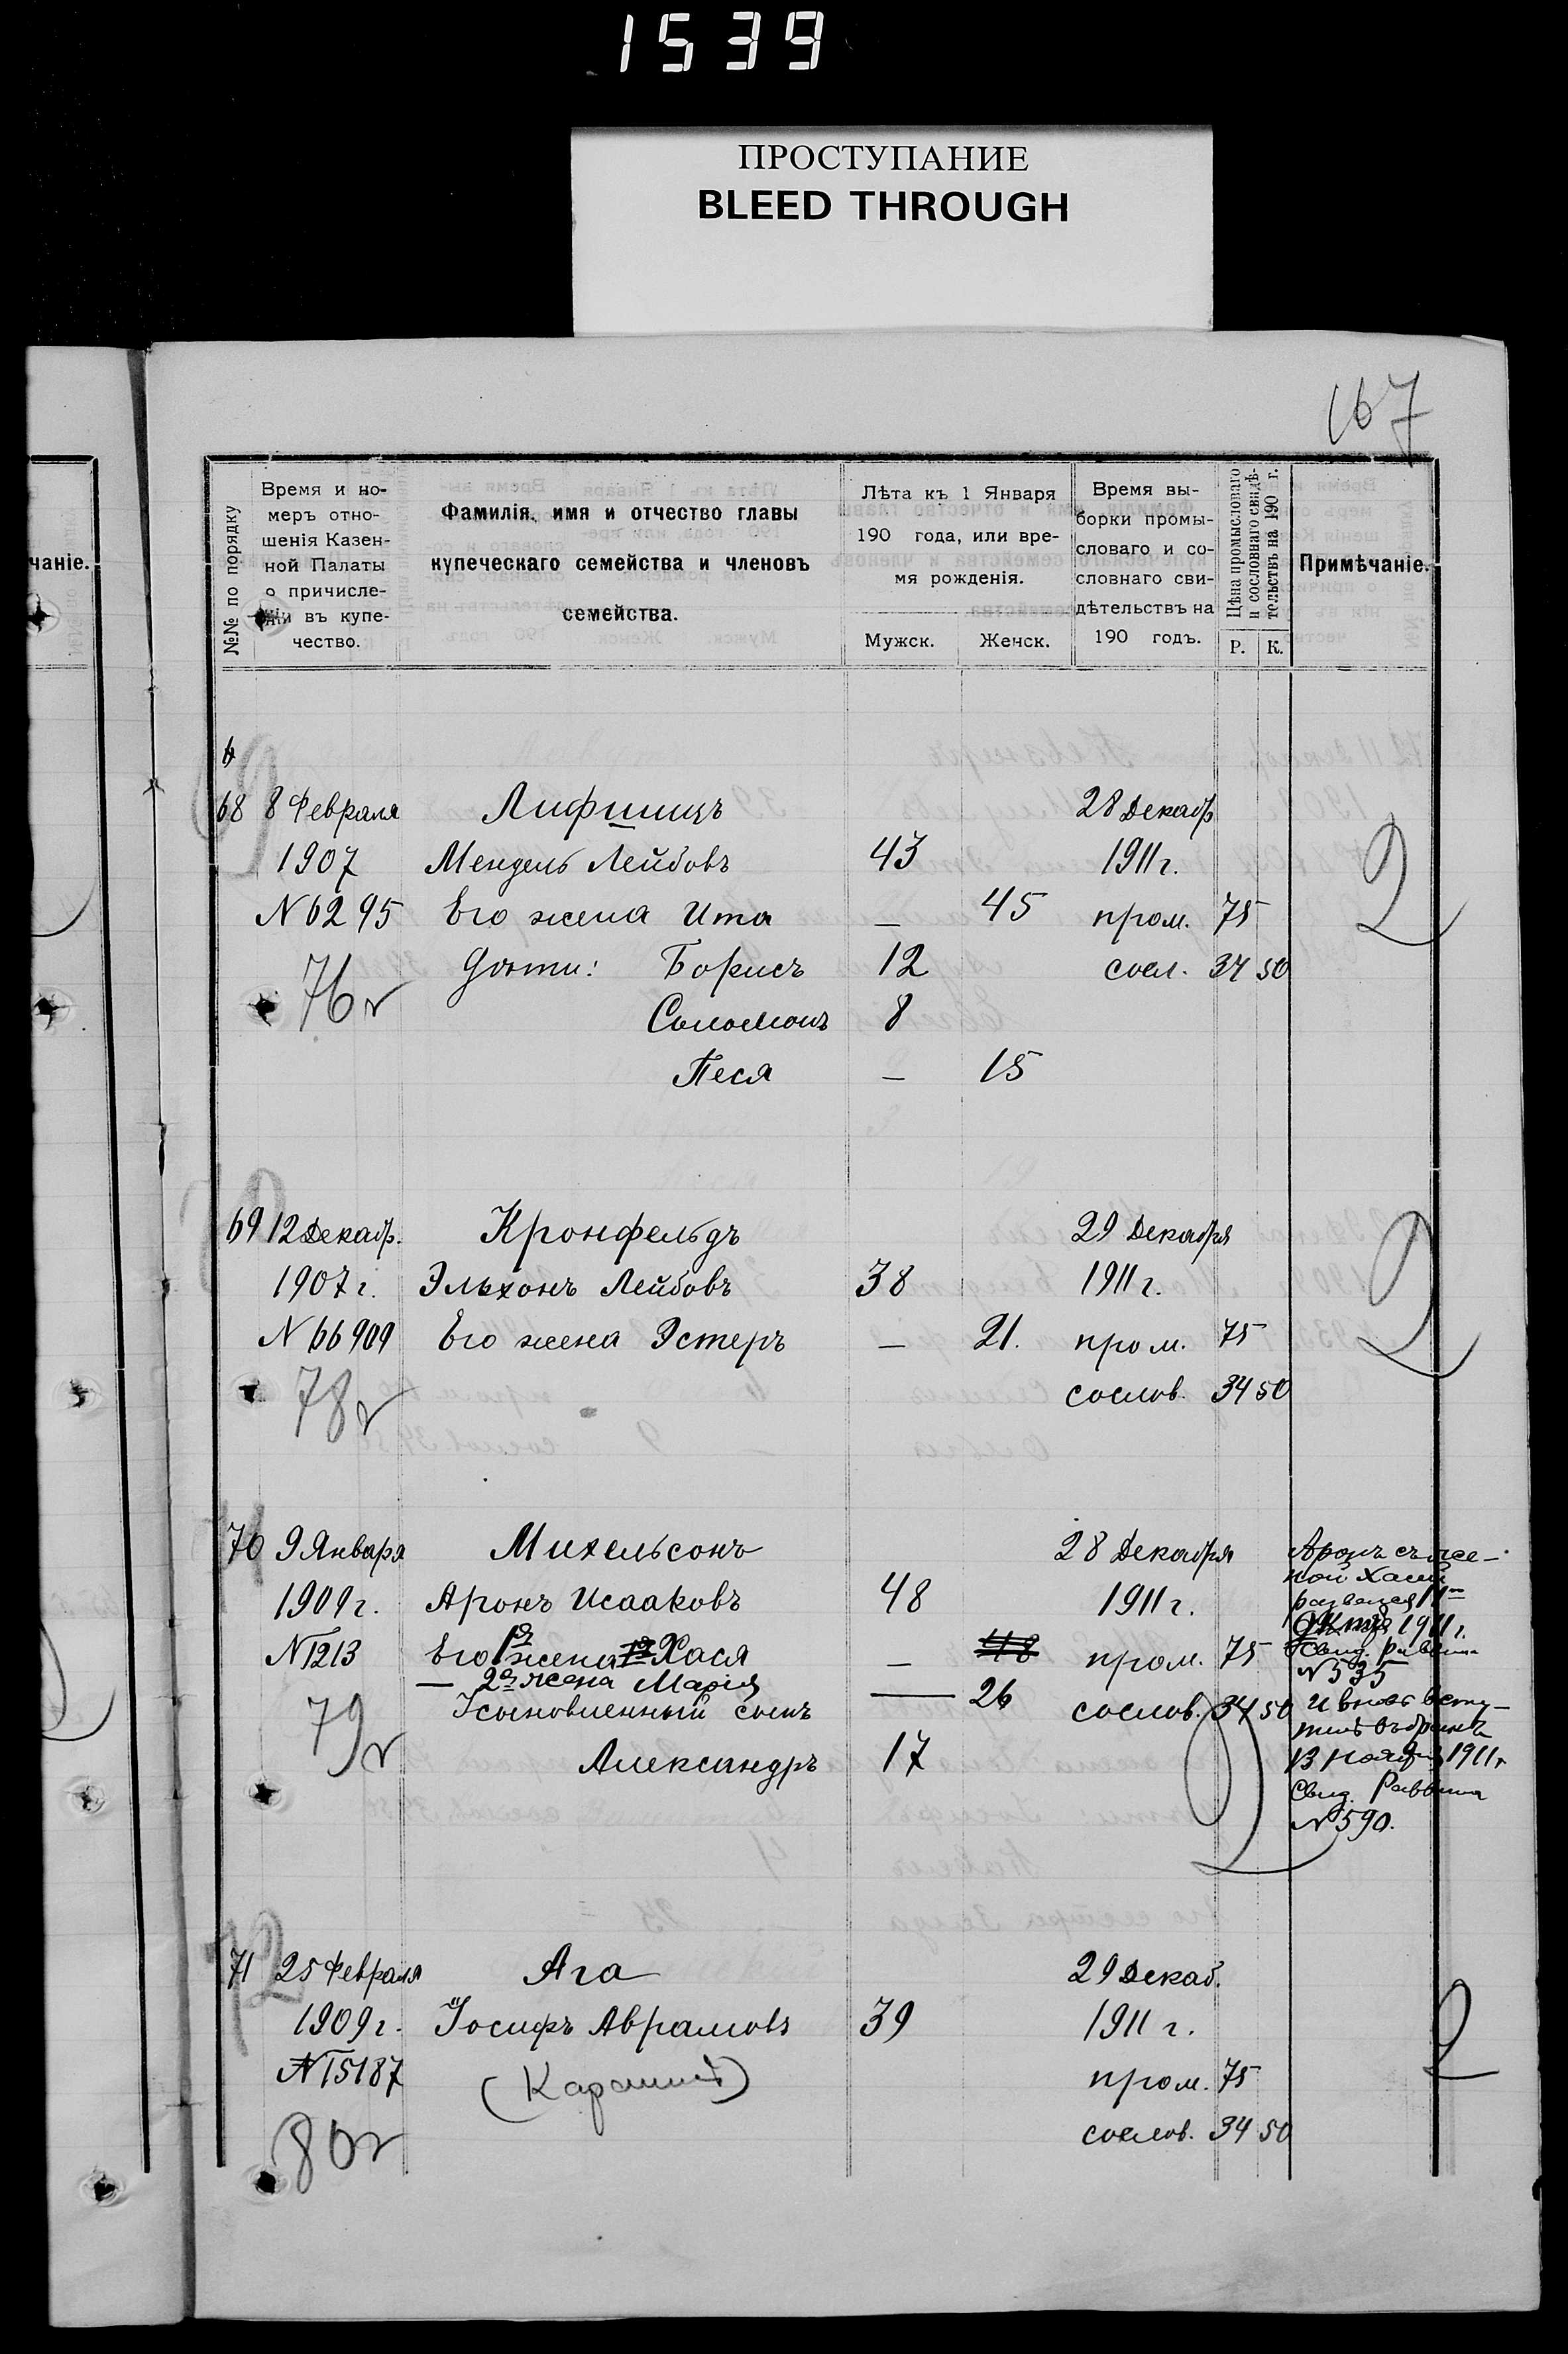 1539
ПРОСТУПАНИЕ
BLEED THROUGH
167
чаніе.
№№ по порядку
Время и но-
меръ отно-
шенія Казен-
ной Палаты
о причисле-
ніи въ купе-
чество.
Фамилія, имя и отчество главы
купеческаго семейства и членовъ
семейства.
Лѣта къ 1 Января
190 года, или вре-
мя рожденія.
Мужск. Женск.
Время вы-
борки промы-
словаго и со-
словнаго сви-
дѣтельствъ на
190 годъ.
Цѣна промысловаго
и сословнаго свидѣ-
тельствъ на 190 г.
Р. К.
Примѣчаніе.
68 8 Февраля Лифшицъ 28 Декабр
1907 Мендель Лейбовъ 43 1911 г.
N 6295 Его жена Ита — 45 пром. 75
76 г Дѣти: Борисъ 12 сосл. 34 50
Соломонъ 8
Песя — 15
69 12 Декабр. Кронфельдъ 29 Декабря
1907 г. Эльхонъ Лейбовъ 38 1911 г.
N 66909 Его жена Эстеръ — 21. пром. 75
78 г сослов. 34 50
70 9 Января Михельсонъ 28 Декабря
1909 г. Аронъ Исааковъ 48 1911 г.
N 1213 Его 1я жена Хася — 48 пром. 75
— 2я жена Марія — 26
79 г Усыновленный сынъ сослов. 34 50
Александръ 17
Аронъ съ же-
ной Хасей
1911 г.
Свид. раввина
N 535
и вновь всту-
пилъ въ бракъ
13 Ноября 1911 г
Свид. Раввина
N 590.
71 25 Февраля Ага 29 Декаб.
1909 г. Іосифъ Аврамовъ 39 1911 г.
N 15187 (Караимъ) пром. 75
80 г сослов. 34 50